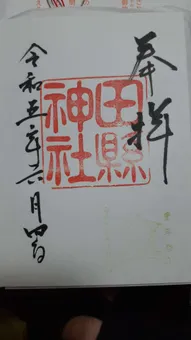 奉拝
田縣神社
令和五年六月四日